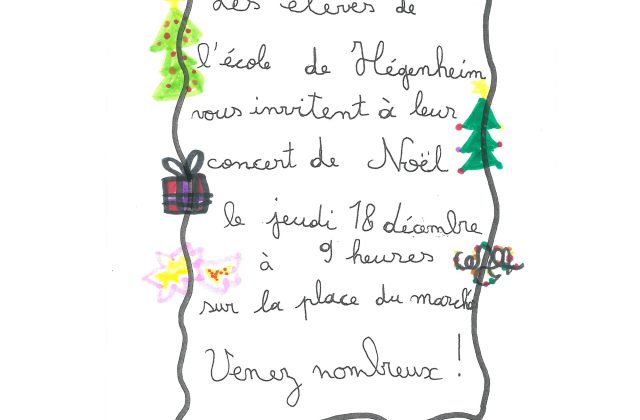 Les élèves de
l'école de Hégenheim
vous invitent à leur
concert de Noël
le jeudi 18 décembre
à 9 heures
sur la place du marché
Venez nombreux !